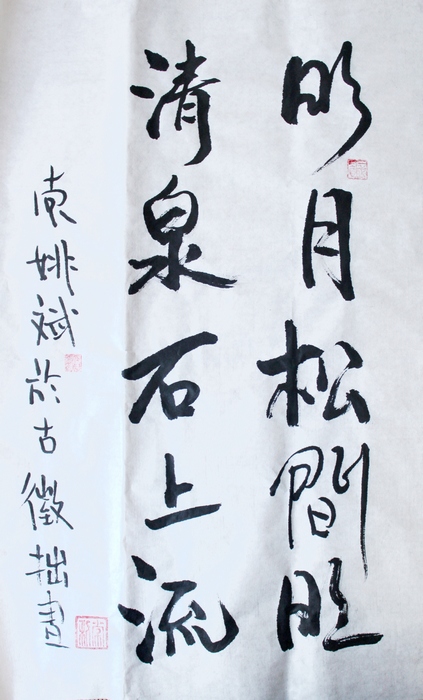 明月松間照
清泉石上流
姚斌於古徽拙書